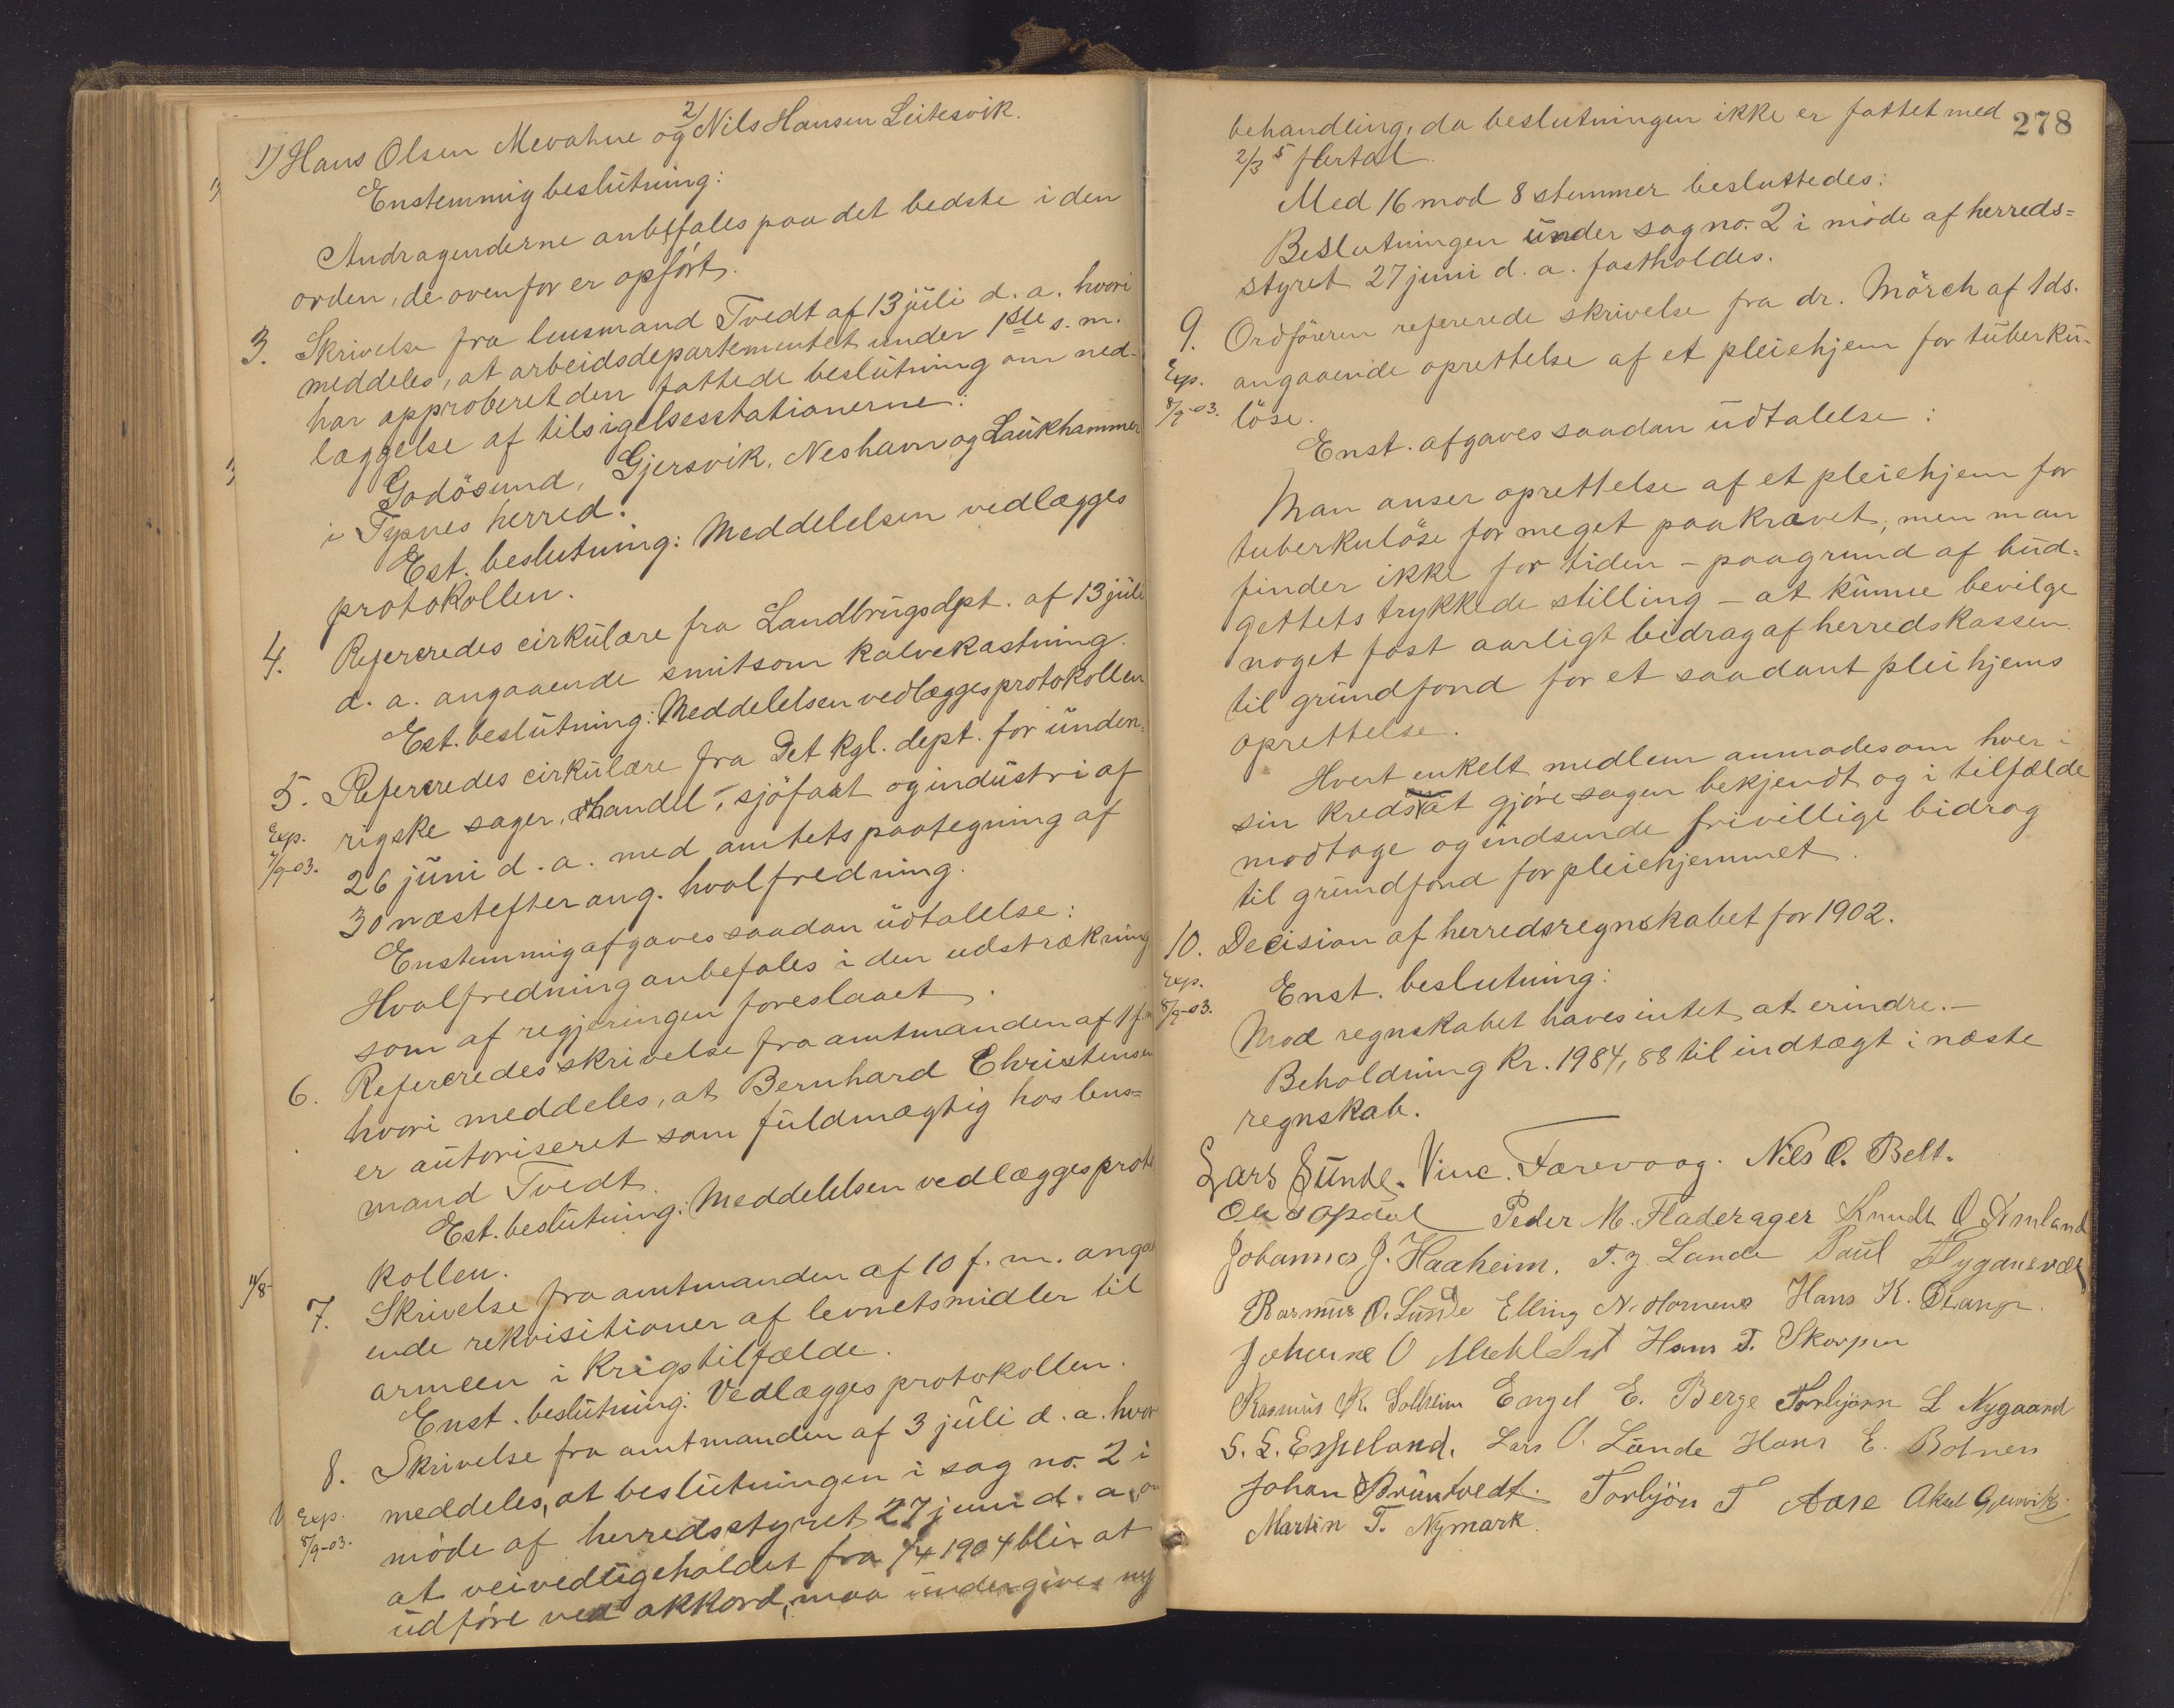 1) Hans Olsen Mevatne og 2) Nils Hansen Leitesvik.
Enstemmig beslutning:
Andragenderne anbefales paa det bedste i den
orden, de ovenfor er opført.
3. Skrivelse fra lensmand Tvedt af 13 juli d. a. hvori
meddeles, at arbeidsdepartementet under 1ste s. m.
har approberet den fattede beslutning om ned-
læggelse af tilsigelsesstationerne:
Godøsund, Gjersvik, Neshavn og Laukhammer
i Tysnes herred.
Est. beslutning: Meddelelsen vedlægges
protokollen.
4. Refereredes cirkulære fra Landbrugsdpt. af 13 juli
d. a. angaaende smitsom kalvekastning.
Est. beslutning: Meddelelsen vedlægges protokollen
5. Refereredes cirkulære fra Det kgl. dept. for uden-
Exp. rigske sager, handel, sjøfart og industri af
7/9-03. 26 juni d. a. med amtets paategning af
30 næstefter ang. hvalfredning.
Enstemmig afgaves saadan udtalelse:
Hvalfredning anbefales i den udstrækning
som af regjeringen foreslaaet.
6. Refereredes skrivelse fra amtmanden af 1 f. m
hvori meddeles, at Bernhard Christensen
er autoriseret som fuldmægtig hos lens-
mand Tvedt.
Est. beslutning: Meddelelsen vedlægges proto
kollen.
11/8- 7. Skrivelse fra amtmanden af 10 f. m. angaa
ende rekvisitioner af levnetsmidler til
armeen i krigstilfælde.
Enst. beslutning: Vedlægges protokollen.
8. Skrivelse fra amtmanden af 3 juli d. a. hvor
meddeles, at beslutningen i sag no. 2 i
Exp. møde af herredsstyret 27 juni d. a., om
8/9-03. at veivedligeholdet fra 1/4 1904 blir at
udføre ved akkord, maa undergives ny
278
behandling, da beslutningen ikke er fattet med
2/3 s flertal.
Med 16 mod 8 stemmer besluttedes:
Beslutningen under sag no. 2 i møde af herreds-
styret 27 juni d. a. fastholdes.
9. Ordføreren refererede skrivelse fra dr. Mørch af 1 ds.
Exp. angaaende oprettelse af et pleiehjem for tuberku-
8/9-03. løse.
Enst. afgaves saadan udtalelse:
Man anser oprettelse af et pleiehjem for
tuberkuløse for meget paakrævet, men man
finder ikke for tiden - paagrund af bud-
gettets trykkede stilling - at kunne bevilge
noget fast aarligt bidrag af herredskassen
til grundfond for et saadant pleihjems
oprettelse.
Hvert enkelt medlem anmodes om hver i
sin kreds at gjøre sagen bekjendt og i tilfælde
modtage og indsende frivillige bidrag
til grundfond for pleiehjemmet.
10. Decision af herredsregnskabet for 1902.
Exp. Enst. beslutning:
8/9-03. Mod regnskabet haves intet at erindre.-
Beholdning kr. 1984,88 til indtægt i næste
regnskab.
Lars Sunde. Vinc. Færevaag. Nils O. Belt.
Peder M. Fladerager Knudt O
Johannes J. Haaheim. T. J. Lande Paul
Rasmus O. Lunde Elling N. Hornenes Hans K. Drange.
O Hans T. Skorpen
Rasmus R. Solheim Engel E. Berge Torbjørn L Nygaard
S. S. Espeland. Lars O. Lunde Hans E. Botnen
Johan Bruntvedt. Torbjøn T Aase Aksel Gjersvik.
Martin T. Nymark.